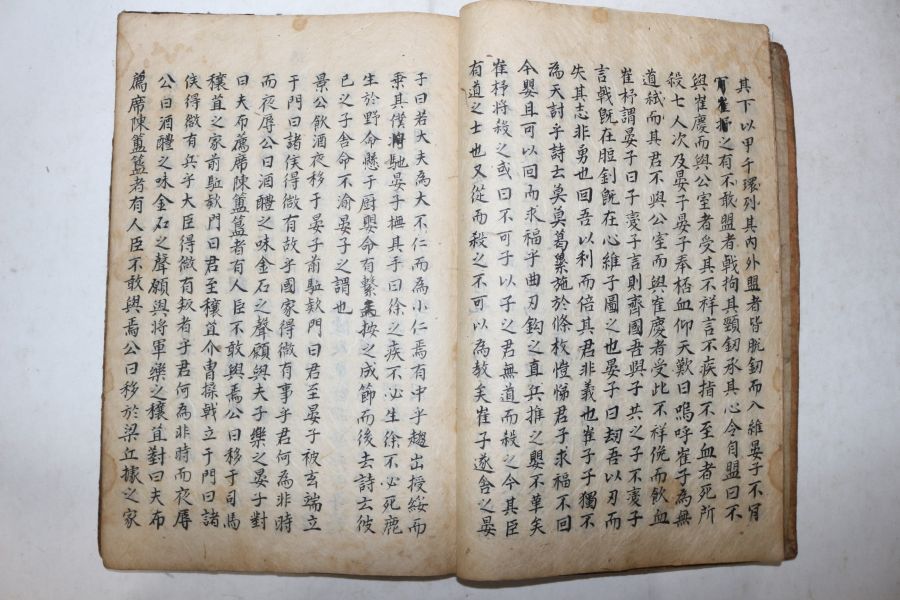 其下以甲千環列其內外盟者皆脫釰而入維晏子不肯
崔杼之有不敢盟者戟拘其頸釰承其心令自盟曰不
與崔慶而與公室者受其不祥言不疾指不至血者死所
殺七人次及晏子晏子奉桮血仰天歎曰嗚呼崔子為無
道弑而其君不與公室而與崔慶者受此不祥俛而飮血
崔杼謂晏子曰子変子言則齊國吾與子共之子不変子
言戟旣在脰釰旣在心維子圖之也晏子曰刼吾以刃而
失其志非勇也回吾以利而倍其君非義也崔子子獨不
為天討乎詩士莫莫葛虆施於條枚愷悌君子求福不回
今嬰且可以回而求福乎曲刃鈎之直兵推之嬰不革矣
崔杼将殺之或曰不可子以子之君無道而殺之今其臣
有道之士也又從而殺之不可以為敎矣崔子遂舍之晏
子曰若大夫為大不仁而為小仁焉有中乎趨出授綏而
乗其僕将馳晏子撫其手曰徐之疾不必生徐不必死鹿
生於野命懸于厨嬰命有繫矣按之成節而後去詩云彼
已之子舍命不渝晏子之謂也
景公飮酒夜移于晏子前駈欵門曰君至晏子被玄端立
于門曰諸侯得微有故乎國家得微有事乎君何為非時
而夜辱公曰酒醴之味金石之聲願與夫子樂之晏子對
曰夫布薦席陳簠簋者有人臣不敢與焉公曰移于司馬
穰苴之家前駈欵門曰君至穰苴介胄操戟立于門曰諸
侯得微有兵乎大臣得微有叛者乎君何為非時而夜辱
公曰酒醴之味金石之聲願與將軍樂之穰苴對曰夫布
薦席陳簠簋者有人臣不敢與焉公曰移於梁丘據之家